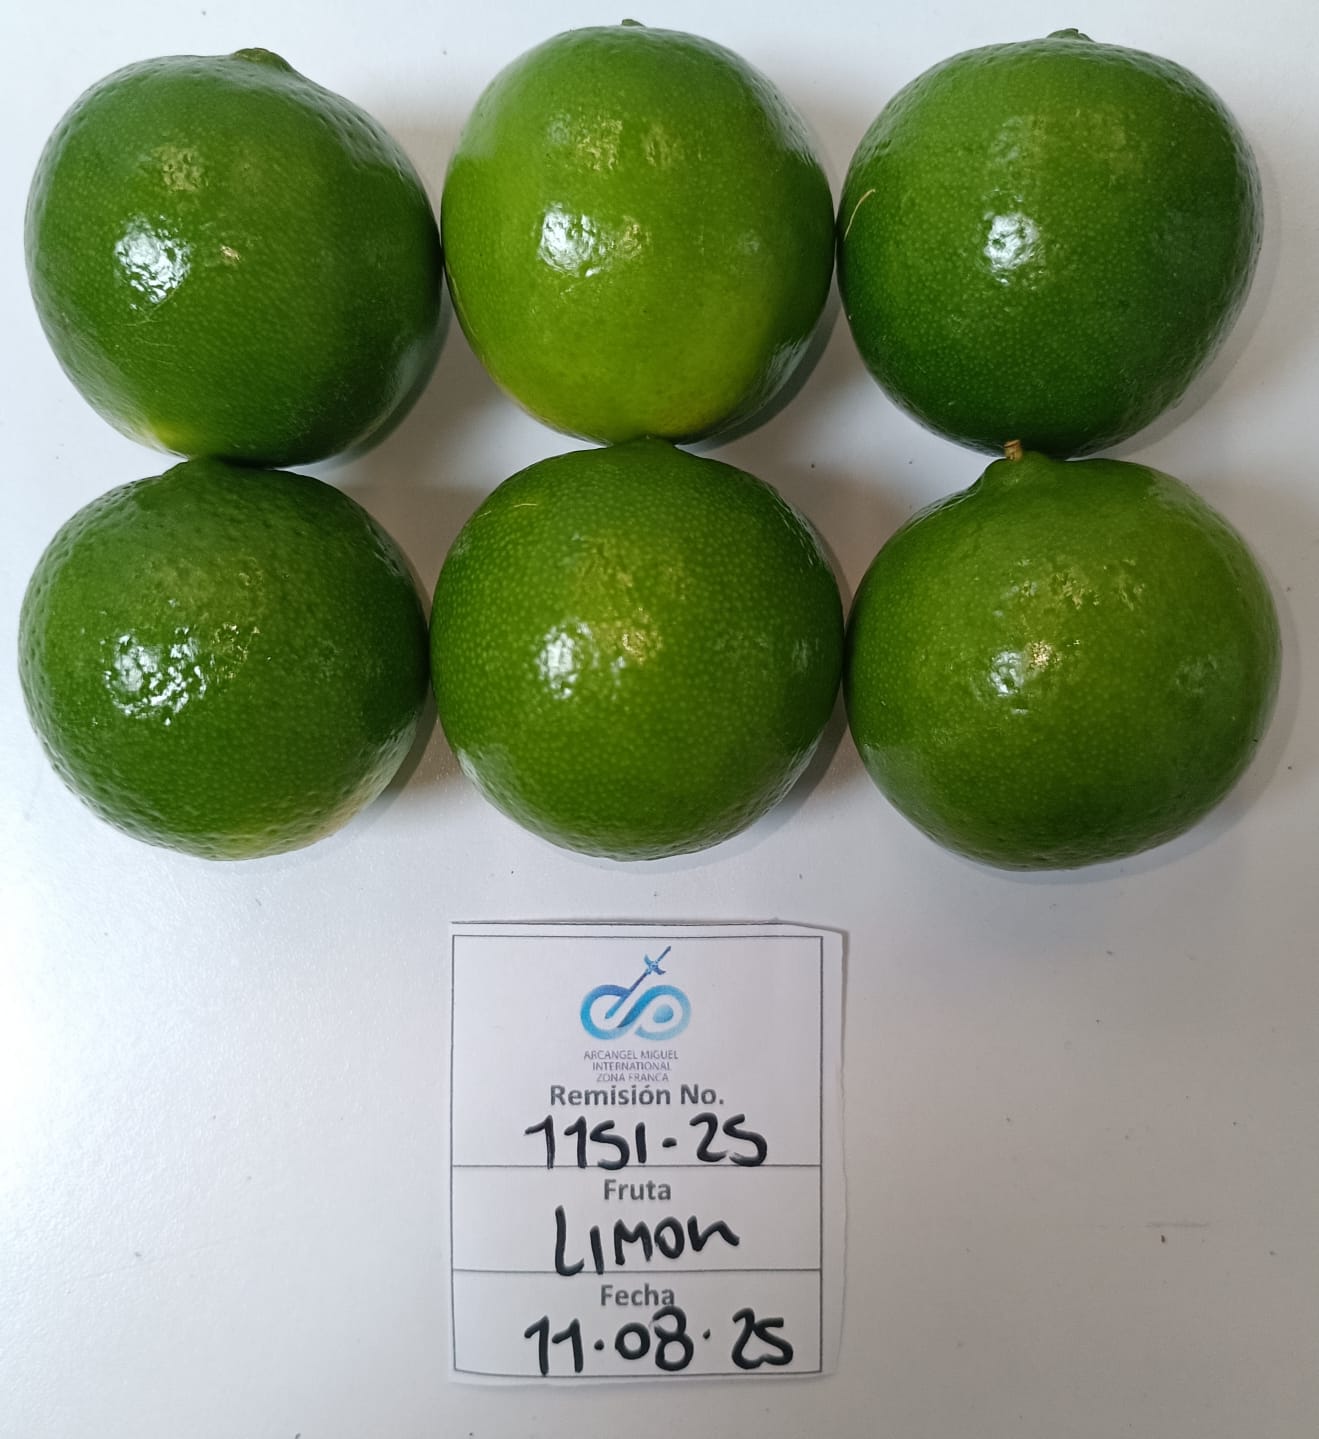 ARCANGEL MIGUEL
INTERNATIONAL
ZONA FRANCA
Remisión No.
1151-25
Fruta
LIMON
Fecha
11.08.25